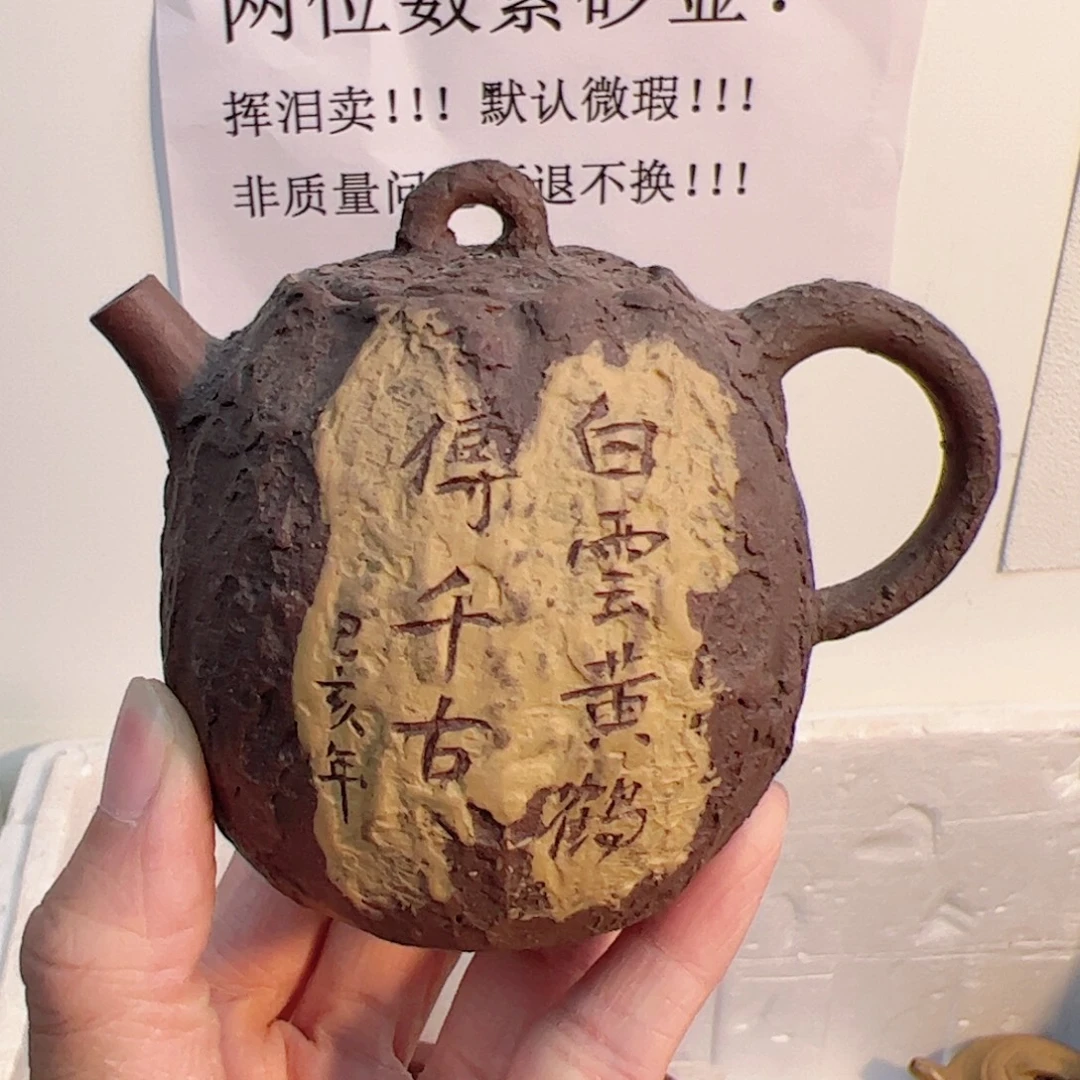 两位数紫砂壶!
挥泪卖!!! 默认微瑕!!!
非质量问 退不换!!!
白雲黄鹤
傳千古
己亥年